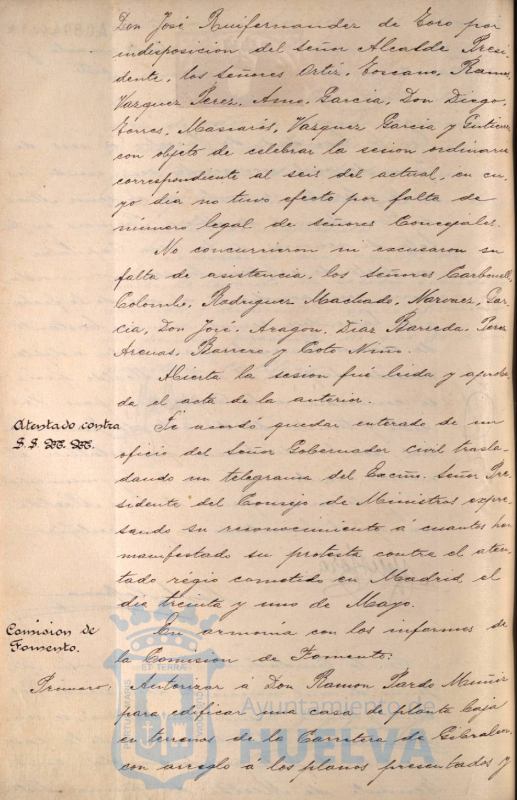 Don José Ruifernandez de Toro por
indisposicion del señor Alcalde Presi-
dente, los Señores Ortiz, Toscano, Ramos,
Vazquez Perez, Amo, Garcia, Don Diego,
Torres, Mascarós, Vazquez Garcia y Gutierrez
con objeto de celebrar la sesion ordinaria
correspondiente al seis del actual, en cu-
yo dia no tuvo efecto por falta de
número legal de señores Concejales.
No concurrieron ni excusaron su
falta de asistencia, los señores Carbonell,
Colombo, Rodriguez Machado, Narvaez, Gar-
cia, Don José, Aragon, Diaz Barreda, Perez
Arenas, Barrero y Coto Niño.
Abierta la sesion fué leida y aproba-
da el acta de la anterior.
Atentado contra
S.S. M.M.
Se acordó quedar enterado de un
oficio del Señor Gobernador civil trasla-
dando un telegrama del Excmo. Señor Pre-
sidente del Consejo de Ministros expre-
sando su reconocimiento á cuantos han
manifestado su protesta contra el aten-
tado régio cometido en Madrid el
dia treinta y uno de Mayo.
Comision de
Fomento.
En armonia con los informes de
la Comision de Fomento:
Primero: Autorizar á Don Ramon Pardo
para edificar una casa de planta baja
en terrenos de la Carretera de Gibraleon,
con arreglo á los planos presentados y
Ayuntamiento de
HUELVA